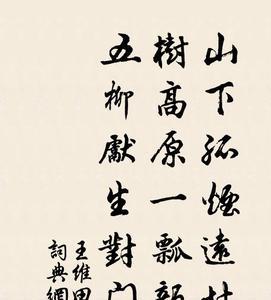 山下孤煙遠
樹高原一瓢
五柳獻生對门
王維田
詞典網